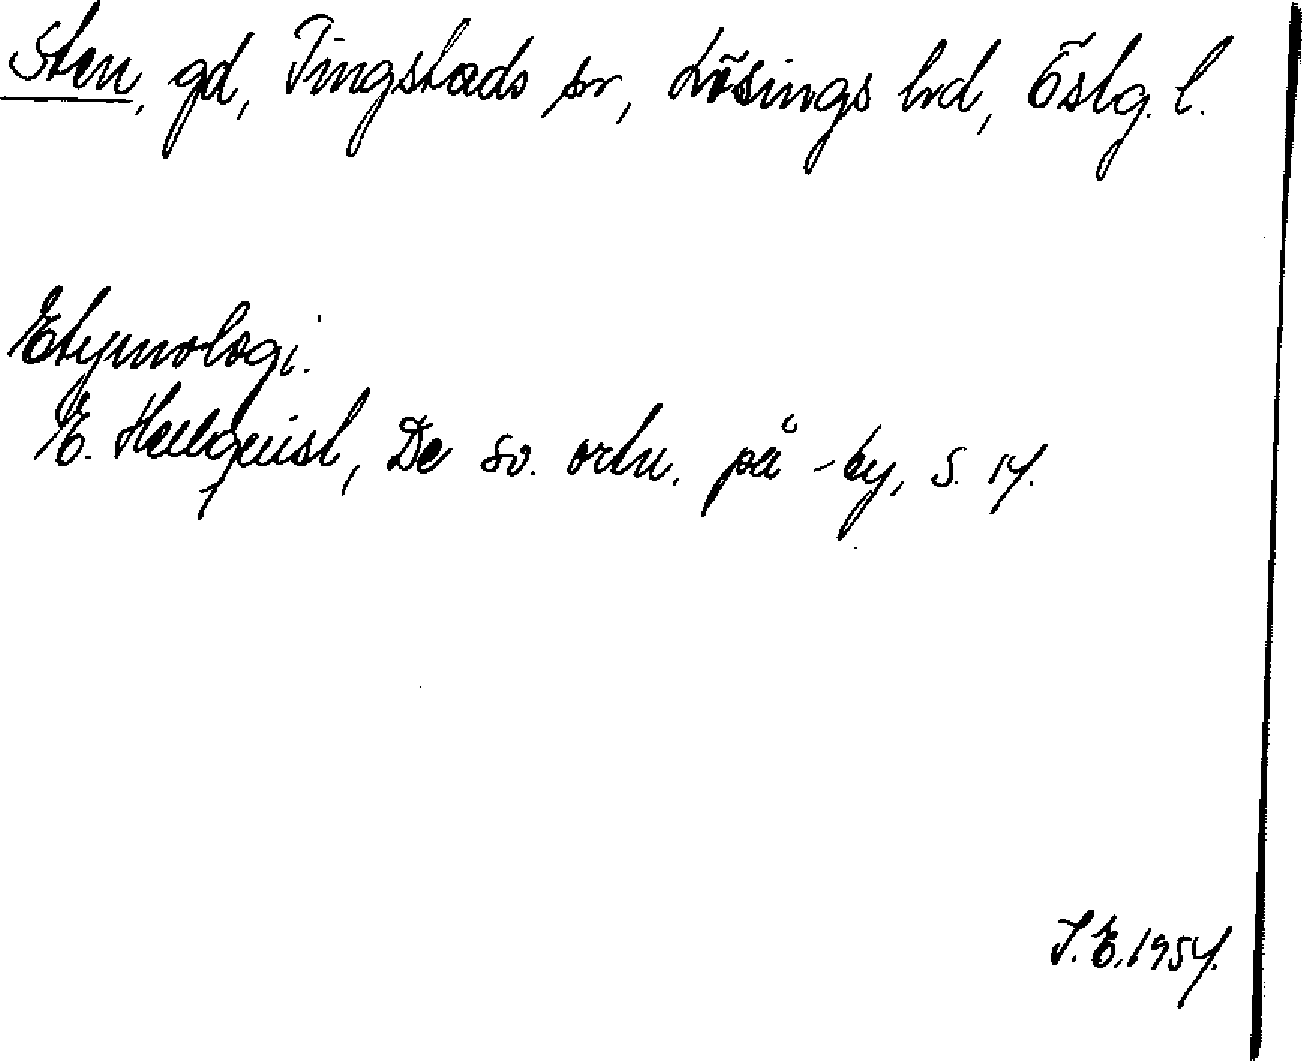 Sten, gd, Tingstads sn, Lösings hd, Östg. l.
Etymologi.
E. Hellquist, De sv. ortn. på -by, s. 14.
I. E. 1954.